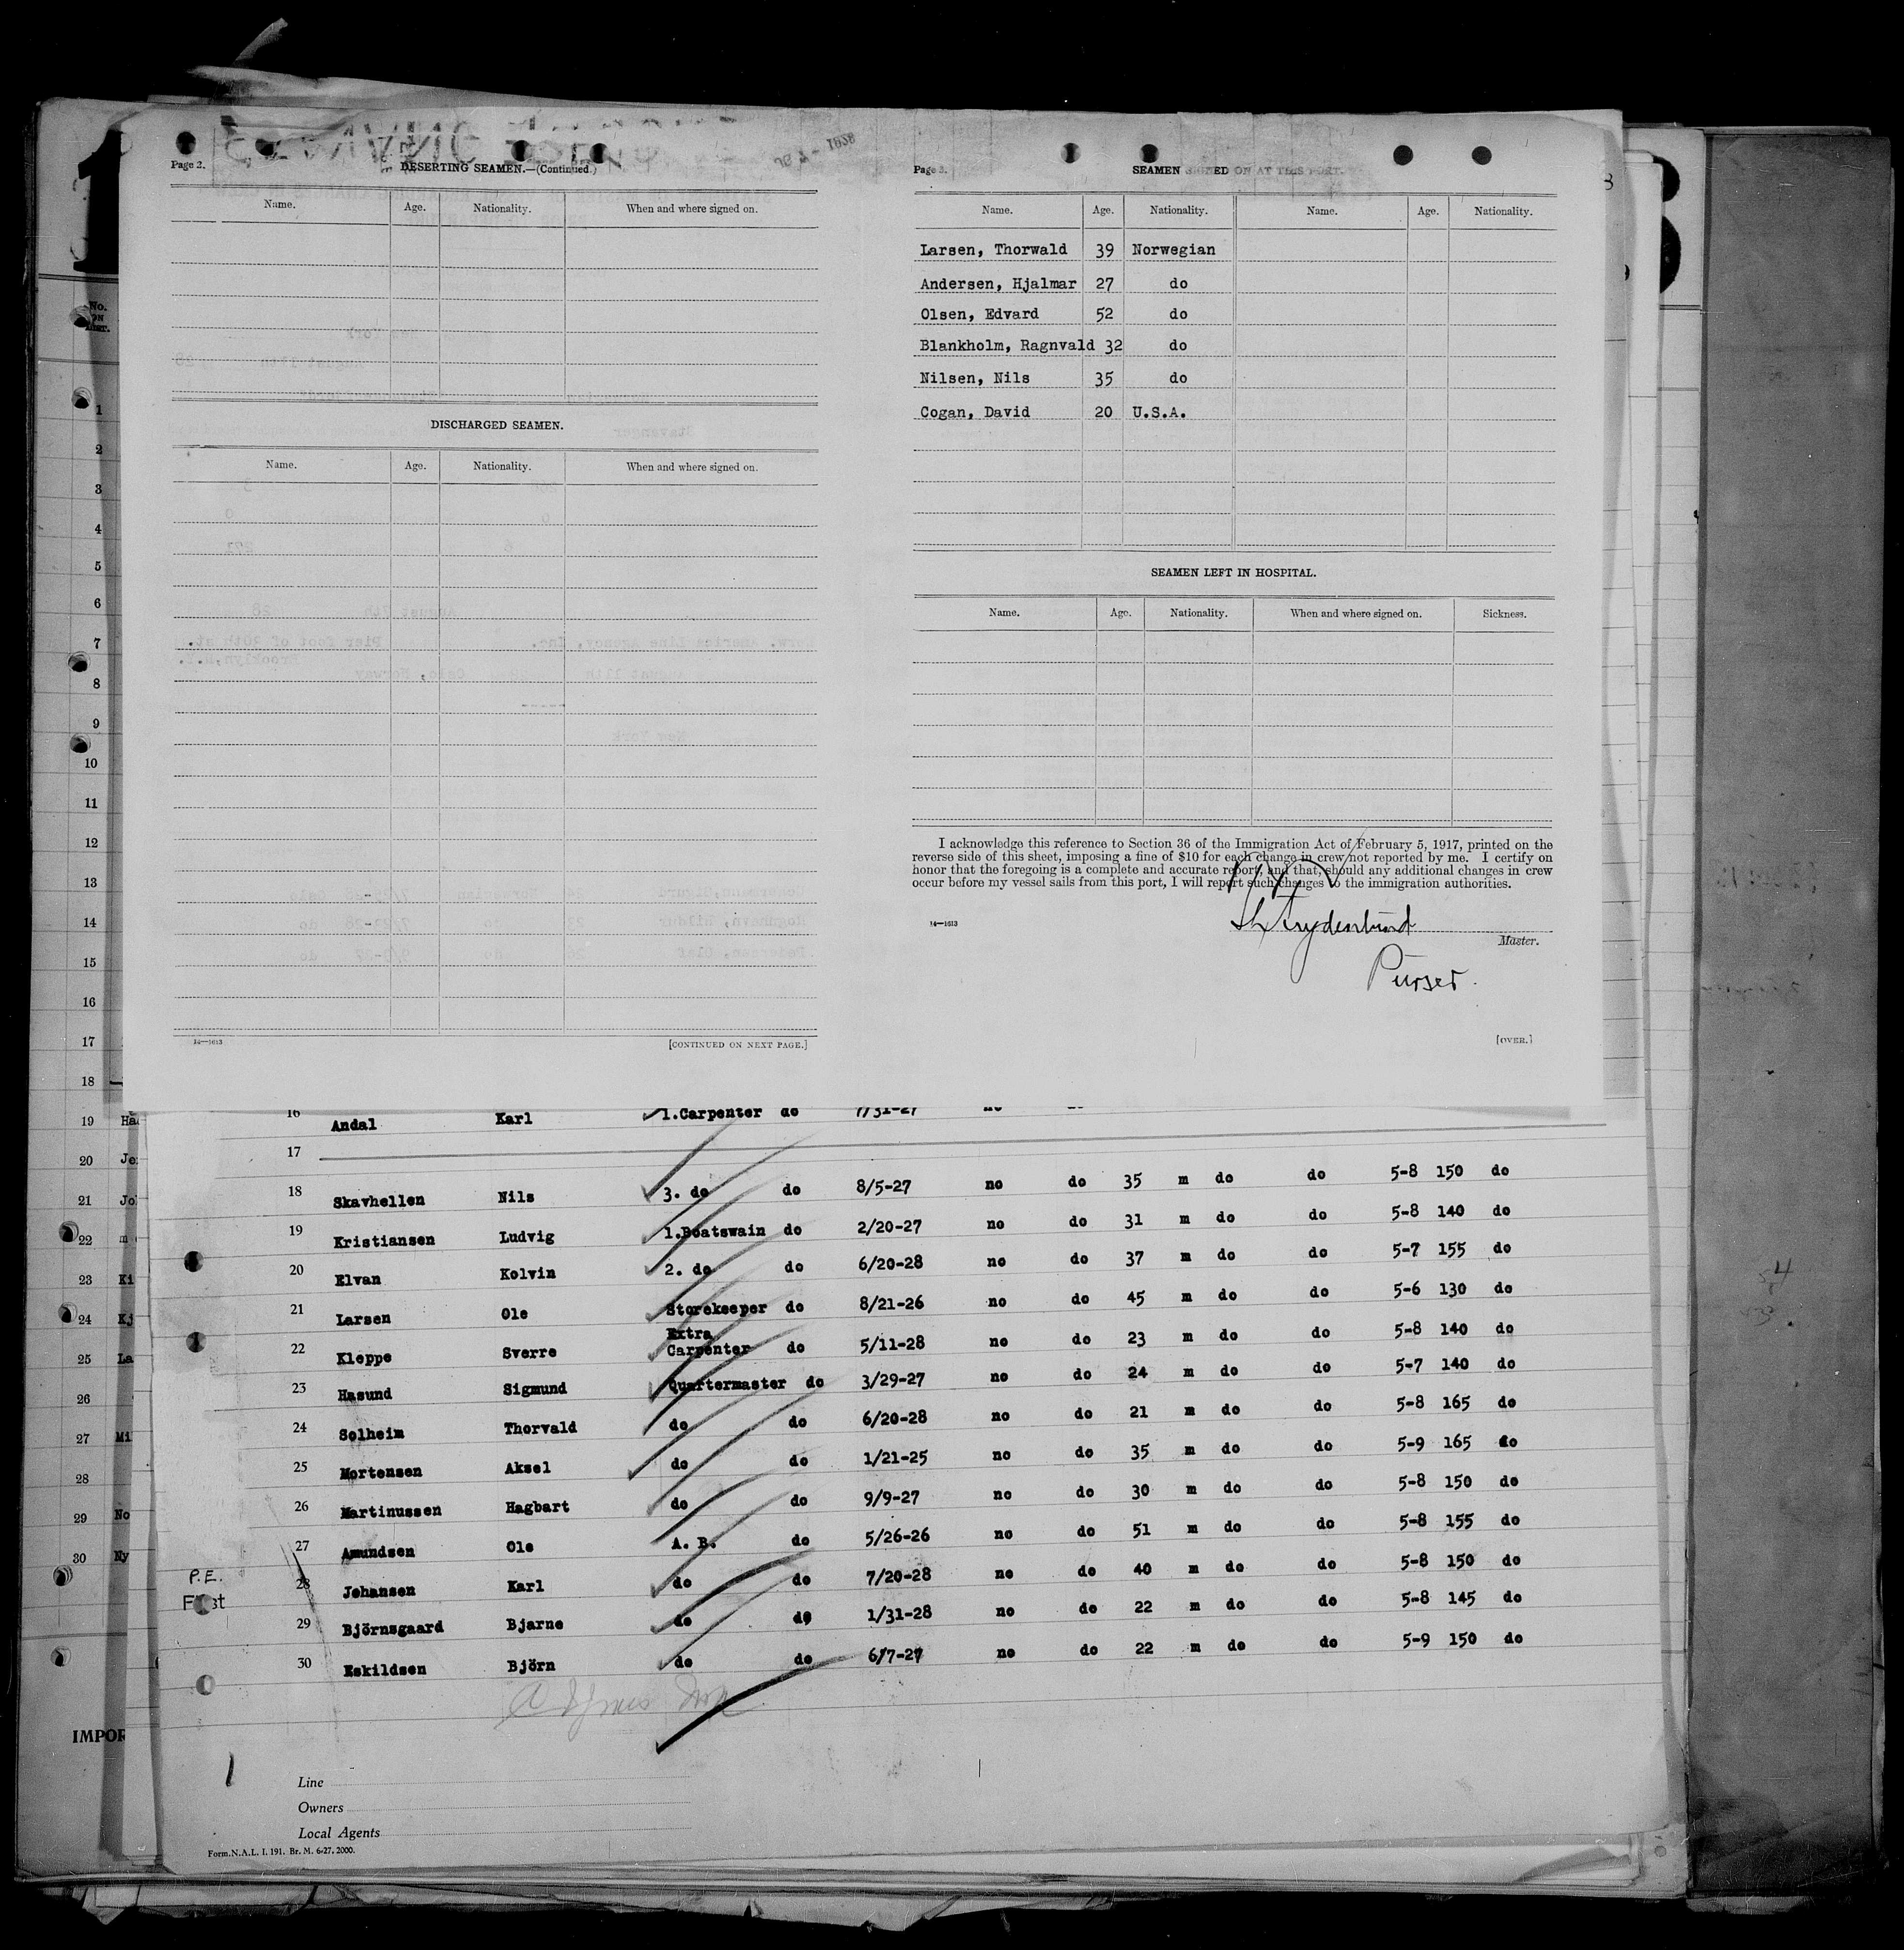 Page 2.
DESERTING SEAMEN.—(Continued.)
Name. Age. Nationality. When and where signed on.
DISCHARGED SEAMEN.
Name. Age. Nationality. When and where signed on.
14—1613
[CONTINUED ON NEXT PAGE.]
Page 3.
SEAMEN SIGNED ON AT THIS PORT.
Name. Age. Nationality. Name. Age. Nationality.
Larsen, Thorwald 39 Norwegian
Andersen, Hjalmar 27 do
Olsen, Edvard 52 do
Blankholm, Ragnvald 32 do
Nilsen, Nils 35 do
Cogan, David 20 U.S.A.
SEAMEN LEFT IN HOSPITAL.
Name. Age. Nationality. When and where signed on. Sickness.
I acknowledge this reference to Section 36 of the Immigration Act of February 5, 1917, printed on the
reverse side of this sheet, imposing a fine of $10 for each change in crew not reported by me. I certify on
honor that the foregoing is a complete and accurate report, and that, should any additional changes in crew
occur before my vessel sails from this port, I will report such changes to the immigration authorities.
14—1613
Master.
Purser.
[OVER.]
No.
ON
LIST.
1
2
3
4
5
6
7
8
9
10
11
12
13
14
15
16
17
18
19 Ha
20 Je
21 Jo
22 m
23 Ki
24 Kj
25 La
26
27 Mi
28
29 No
30 Ny
IMPOR
16 Andal Karl 1.Carpenter do 7/31-27 no do
17
18 Skavhellen Nils 3. do do 8/5-27 no do 35 m do do 5-8 150 do
19 Kristiansen Ludvig 1.Boatswain do 2/20-27 no do 31 m do do 5-8 140 do
20 Elvan Kolvin 2. do do 6/20-28 no do 37 m do do 5-7 155 do
21 Larsen Ole Storekeeper do 8/21-26 no do 45 m do do 5-6 130 do
Extra
22 Kleppe Sverre Carpenter do 5/11-28 no do 23 m do do 5-8 140 do
23 Hasund Sigmund Quartermaster do 3/29-27 no do 24 m do do 5-7 140 do
24 Solheim Thorvald do do 6/20-28 no do 21 m do do 5-8 165 do
25 Mortensen Aksel do do 1/21-25 no do 35 m do do 5-9 165 do
26 Martinussen Hagbart do do 9/9-27 no do 30 m do do 5-8 150 do
27 Amundsen Ole A. B. do 5/26-26 no do 51 m do do 5-8 155 do
P.E.
28 Johansen Karl do do 7/20-28 no do 40 m do do 5-8 150 do
First
29 Björnsgaard Bjarne do do 1/31-28 no do 22 m do do 5-8 145 do
30 Eskildsen Björn do do 6/7-27 no do 22 m do do 5-9 150 do
1
Line
Owners
Local Agents
Form.N.A.L. I. 191. Br. M. 6-27. 2000.